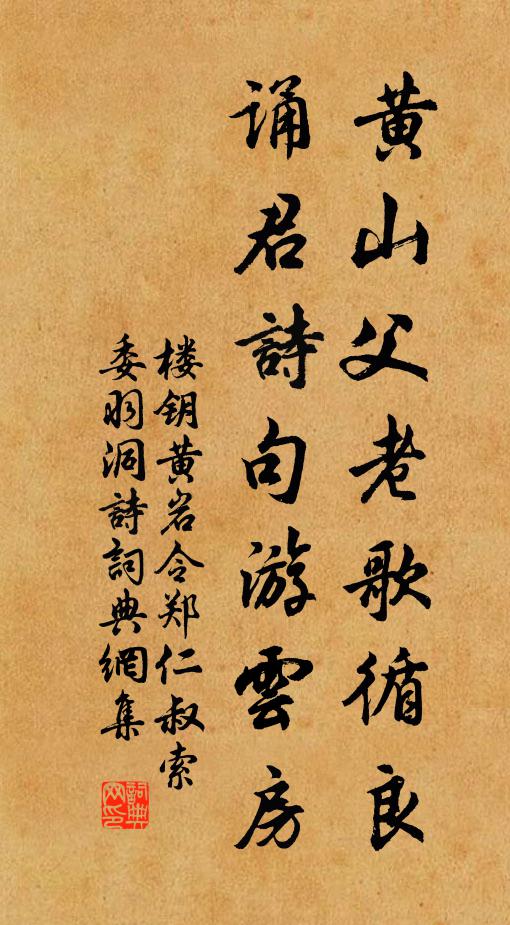 黄山父老歌循良
诵君詩句游雲房
楼钥黄岩令郑仁叔索
委羽洞詩詞典網集
詞典
网印